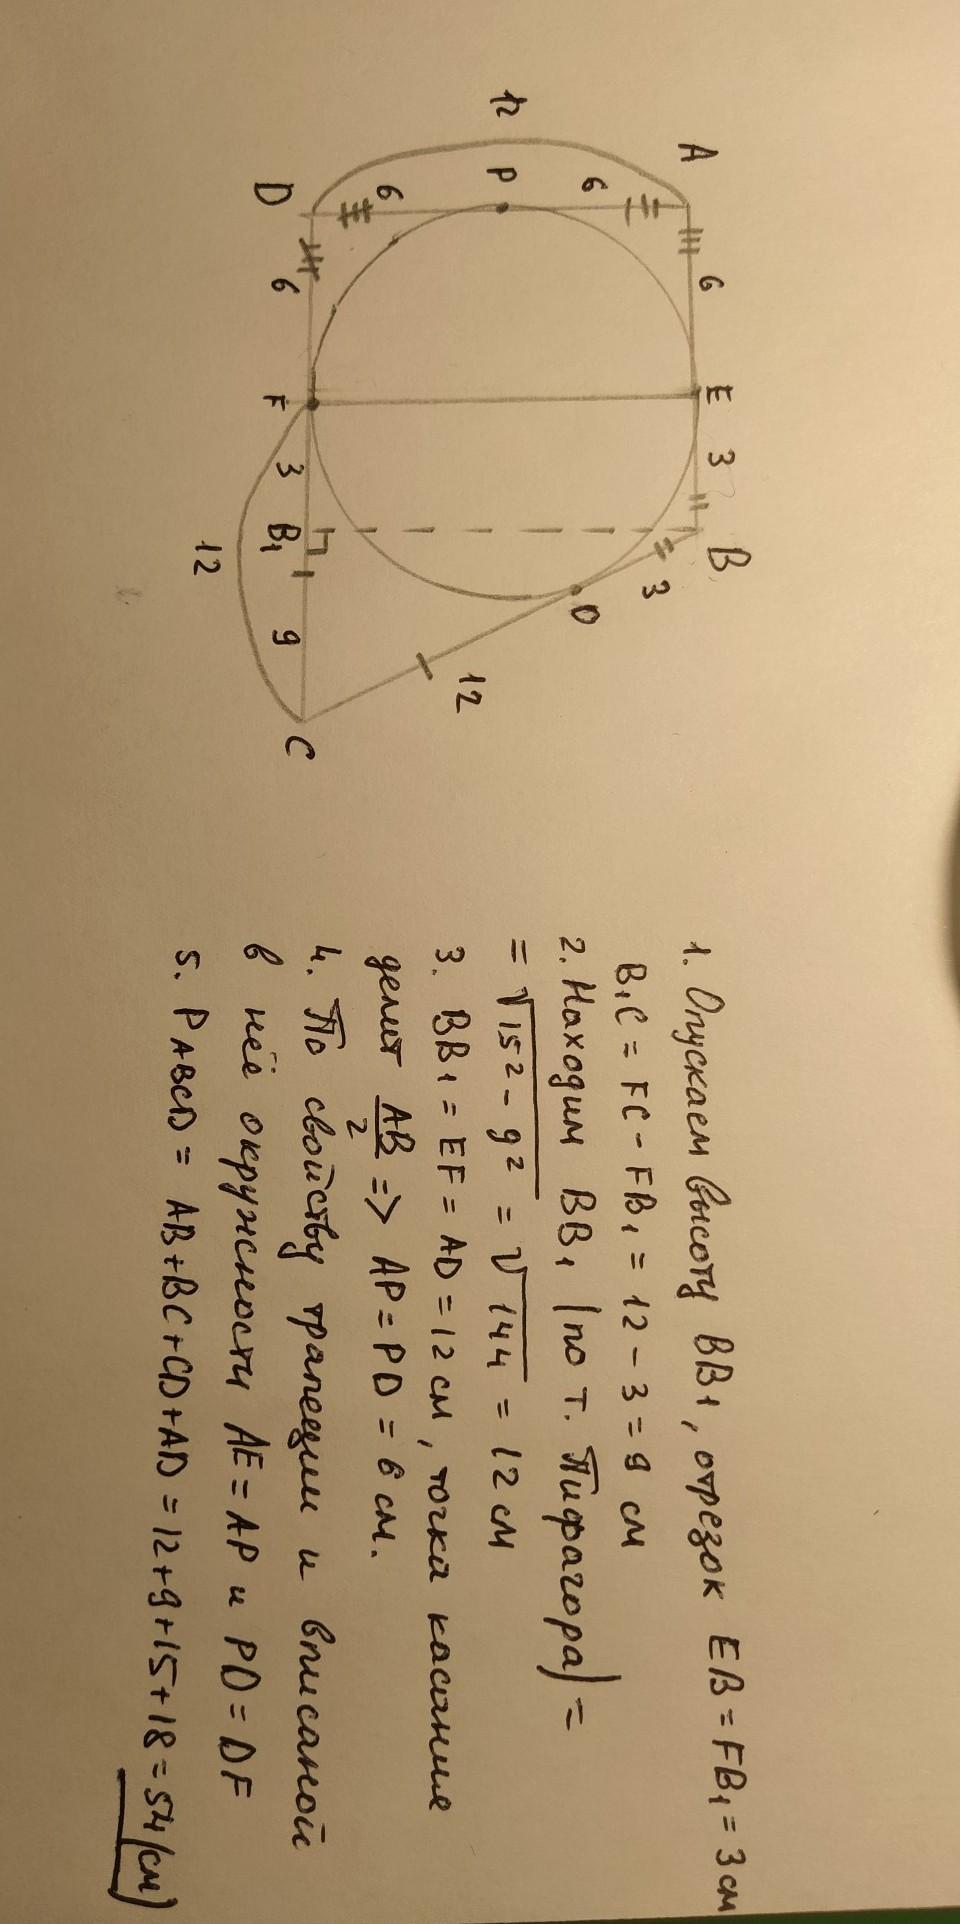 A 6 E 3 B
6 3
12 P O
6 12
D 6 F 3 B₁ 9 C
12
1. Опускаем высоту BB₁, отрезок EB = FB₁ = 3 см
B₁C = FC - FB₁ = 12 - 3 = 9 см
2. Находим BB₁ (по т. Пифагора) =
= √15² - 9² = √144 = 12 см
3. BB₁ = EF = AD = 12 см, точка касания
делит AB/2 => AP = PD = 6 см.
4. По свойству трапеции и вписаной
в неё окружности AE = AP и PD = DF
5. P ABCD = AB+BC+CD+AD = 12+9+15+18 = 54 (см)